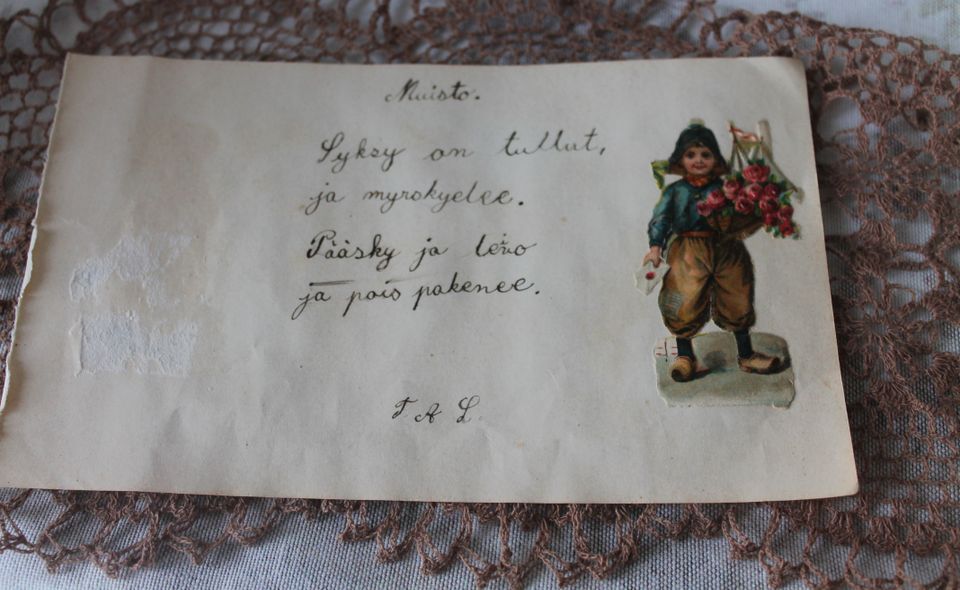 Muisto.
Syksy on tullut,
ja myrskyelee.
Pääsky ja
ja pois pakenee.
T A L.